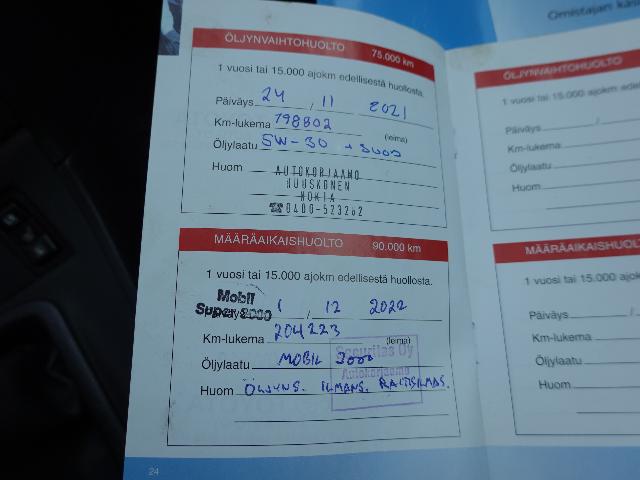 Omistajan käsi
ÖLJYNVAIHTOHUOLTO 75.000 km
1 vuosi tai 15.000 ajokm edellisestä huollosta.
Päiväys 24 / 11 2021
Km-lukema 198802 (leima)
Öljylaatu 5W-30 + suod
Huom AUTOKORJAAMO
HUUSKONEN
NOKIA
☎0400-523262
MÄÄRÄAIKAISHUOLTO 90.000 km
1 vuosi tai 15.000 ajokm edellisestä huollosta.
Mobil
Super 2000 1 / 12 2022
Km-lukema 204223 (leima)
Öljylaatu MOBIL 2000
Securitas Oy
Autokorjaamo
Huom ÖLJYNS. ILMANS. RAITISILMAS.
24
ÖLJYNVAIHTOHUOLTO
1 vuosi tai 15.000 ajokm ede
Päiväys /
Km-lukema
Öljylaatu
Huom
MÄÄRÄAIKAISHUOLT
1 vuosi tai 15.000 ajokm
Päiväys /
Km-lukema
Öljylaatu
Huom